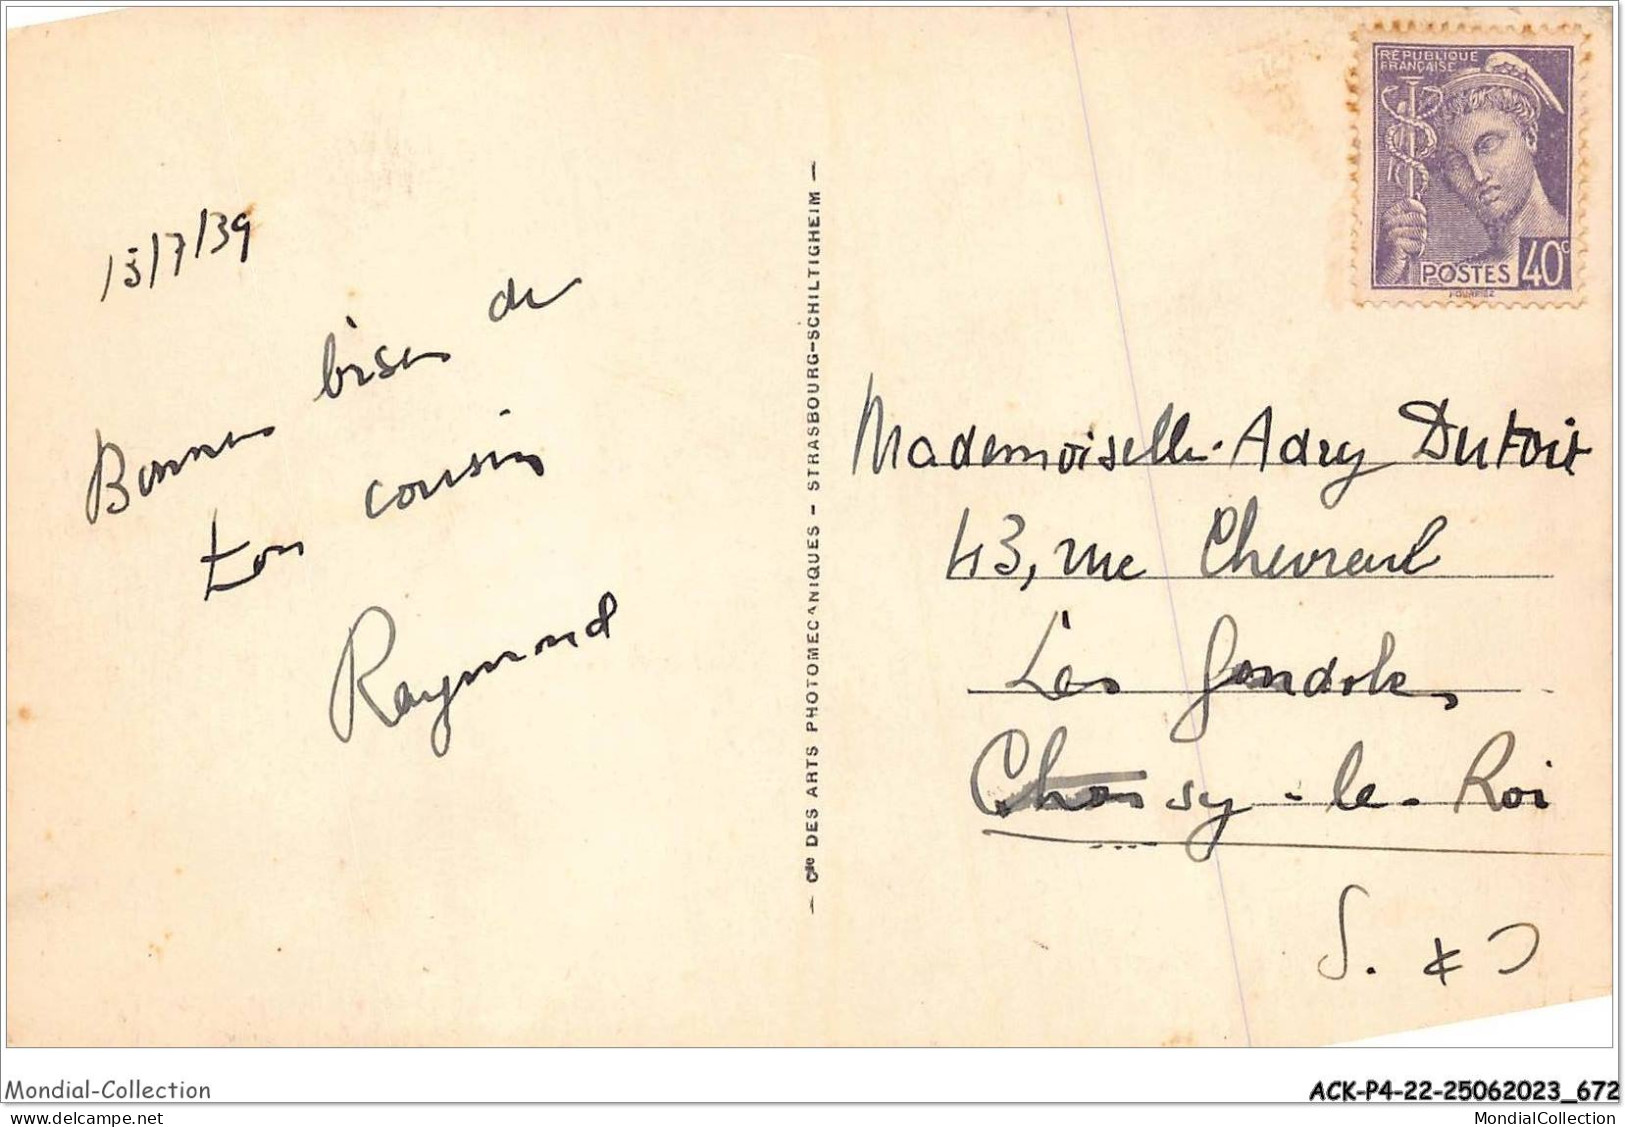 13/7/39
Bonnes bises de
ton cousin
Raymond
— Cie DES ARTS PHOTOMECANIQUES - STRASBOURG-SCHILTIGHEIM —
RÉPUBLIQUE
FRANÇAISE
POSTES 40c
Mademoiselle Adry Dutoit
43, rue Chevreul
Les Gondoles
Choisy-le-Roi
S. & O
Mondial-Collection
ACK-P4-22-25062023_672
delcampe.net
MondialCollection